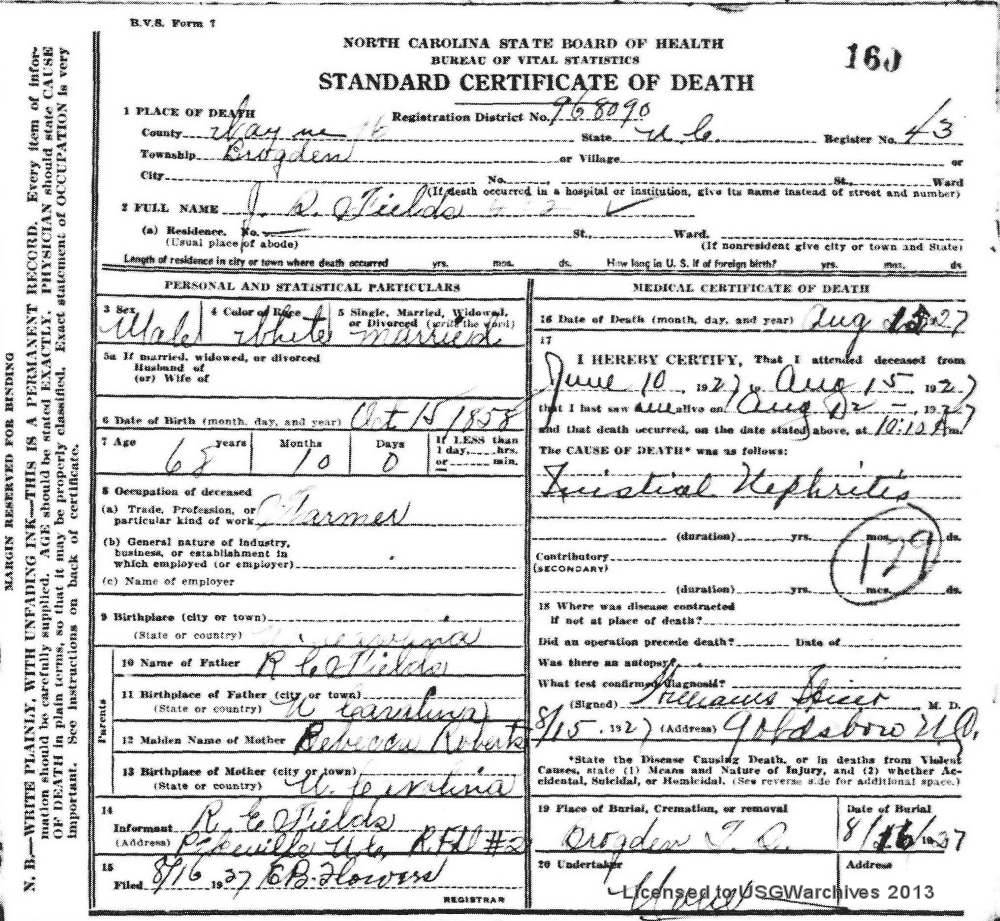 B.V.S. Form 7
NORTH CAROLINA STATE BOARD OF HEALTH
BUREAU OF VITAL STATISTICS
STANDARD CERTIFICATE OF DEATH
160
1 PLACE OF DEATH
Registration District No. 968090
County Wayne State N. C. Register No. 43
Township Brogden or Village or
City No. St., Ward
(If death occurred in a hospital or institution, give its name instead of street and number)
2 FULL NAME Fields
(a) Residence. No. St., Ward.
(Usual place of abode) (If nonresident give city or town and State)
Length of residence in city or town where death occurred yrs. mos. ds. How long in U. S. if of foreign birth? yrs. mos. ds
PERSONAL AND STATISTICAL PARTICULARS
3 Sex 4 Color of Race 5 Single, Married, Widowed, or Divorced (write the word)
Male White married
5a If married, widowed, or divorced
Husband of
(or) Wife of
6 Date of Birth (month, day, and year) Oct 15 1858
7 Age years Months Days If LESS than
1 day, hrs.
or min.
68 10 0
8 Occupation of deceased
(a) Trade, Profession, or
particular kind of work Farmer
(b) General nature of industry,
business, or establishment in
which employed (or employer)
(c) Name of employer
9 Birthplace (city or town)
(State or country) N Carolina
10 Name of Father R C Fields
11 Birthplace of Father (city or town)
(State or country) N Carolina
12 Maiden Name of Mother Rebecca Roberts
13 Birthplace of Mother (city or town)
(State or country) N. Carolina
Parents
14
Informant R E Fields
(Address) Pikeville N.C. RFD #2
15
Filed 8/16 1927 E.B. Flowers
REGISTRAR
MEDICAL CERTIFICATE OF DEATH
16 Date of Death (month, day, and year) Aug 15 27
17
I HEREBY CERTIFY, That I attended deceased from
June 10, 1927, to Aug 15, 1927
that I last saw alive on Aug 1927
and that death occurred, on the date stated above, at 10:10 A m.
The CAUSE OF DEATH* was as follows:
Nephritis
(duration) yrs. mos. ds.
129
Contributory
(SECONDARY)
(duration) yrs. mos. ds.
18 Where was disease contracted
if not at place of death?
Did an operation precede death? Date of
Was there an autopsy?
What test confirmed diagnosis?
(Signed) Williams M. D.
8/15, 1927 (Address) Goldsboro N.C.
*State the Disease Causing Death, or in deaths from Violent
Causes, state (1) Means and Nature of Injury, and (2) whether Ac-
cidental, Suicidal, or Homicidal. (See reverse side for additional space.)
19 Place of Burial, Cremation, or removal Date of Burial
Brogden 8/16/1927
20 Undertaker Address
N. B.—WRITE PLAINLY, WITH UNFADING INK—THIS IS A PERMANENT RECORD. Every item of infor-
mation should be carefully supplied. AGE should be stated EXACTLY. PHYSICIAN should state CAUSE
OF DEATH in plain terms, so that it may be properly classified. Exact statement of OCCUPATION is very
important. See instructions on back of certificate.
MARGIN RESERVED FOR BINDING
Licensed to USGWarchives 2013